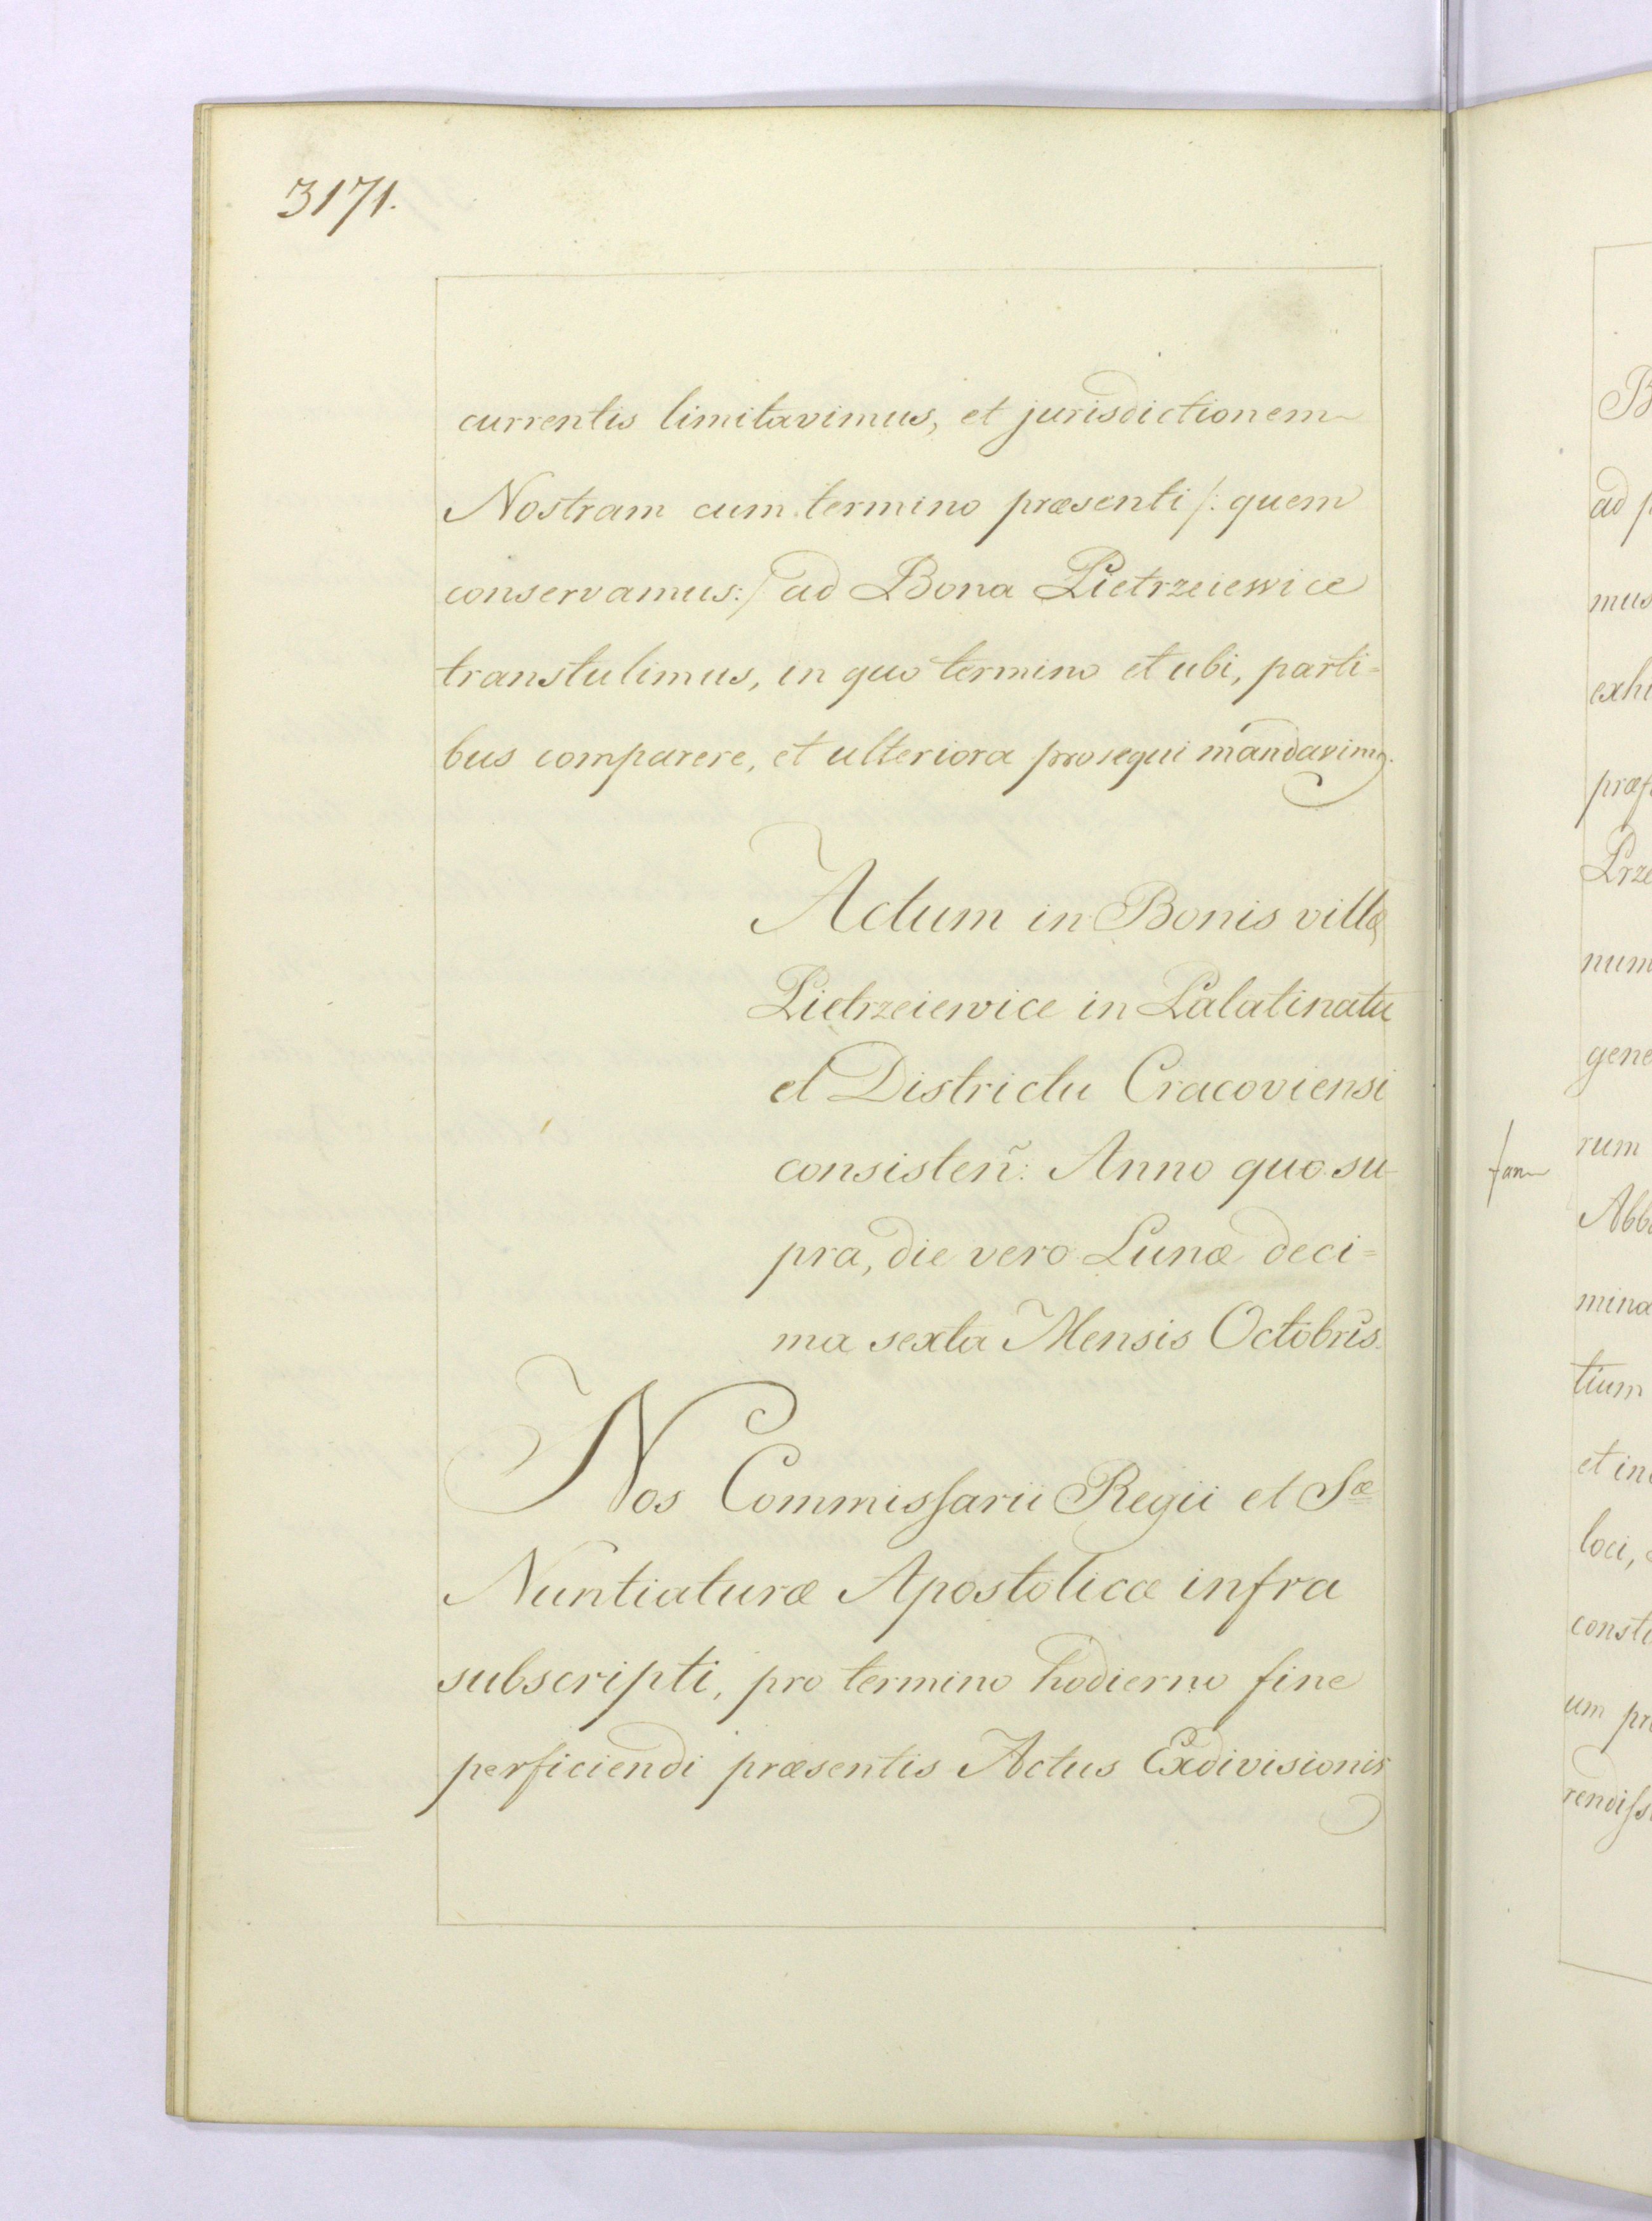 3171.
currentis limitavimus, et jurisdictionem
Nostram cum termino præsenti /: quem
conservamus:/ ad Bona Pietrzeiewice
transtulimus, in quo termino et ubi, parti=
bus comparere, et ulteriora prosequi mandavimꝰ.
Actum in Bonis villæ
Pietrzeiewice in Palatinatu
et Districtu Cracoviensi
consisteñ: Anno quo su-
pra, die vero Lunæ deci=
ma sexta Mensis Octobris.
Nos Commissarii Regii et Sæ
Nuntiaturæ Apostolicæ infra
subscripti, pro termino hodierno fine
perficiendi præsentis Actus Exdivisionis
B
ad p
mus
exhi
præf
Prze
num
gene
rum
Abb
mina
tium
et in
loci,
consti
um pr
rendiss